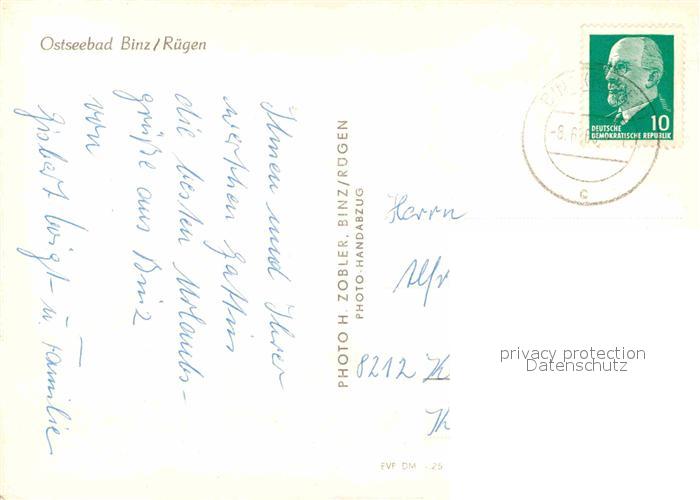 Ostseebad Binz/Rügen
Ihnen und Ihrer
werthen Gattin
die besten Urlaubs-
grüße aus Binz
von
Voigt u. Familie
PHOTO H. ZOBLER, BINZ/RÜGEN
PHOTO-HANDABZUG
10
DEUTSCHE
DEMOKRATISCHE REPUBLIK
c
Herrn
Alfr
8212 K
Th
privacy protection
Datenschutz
EVP DM -.25